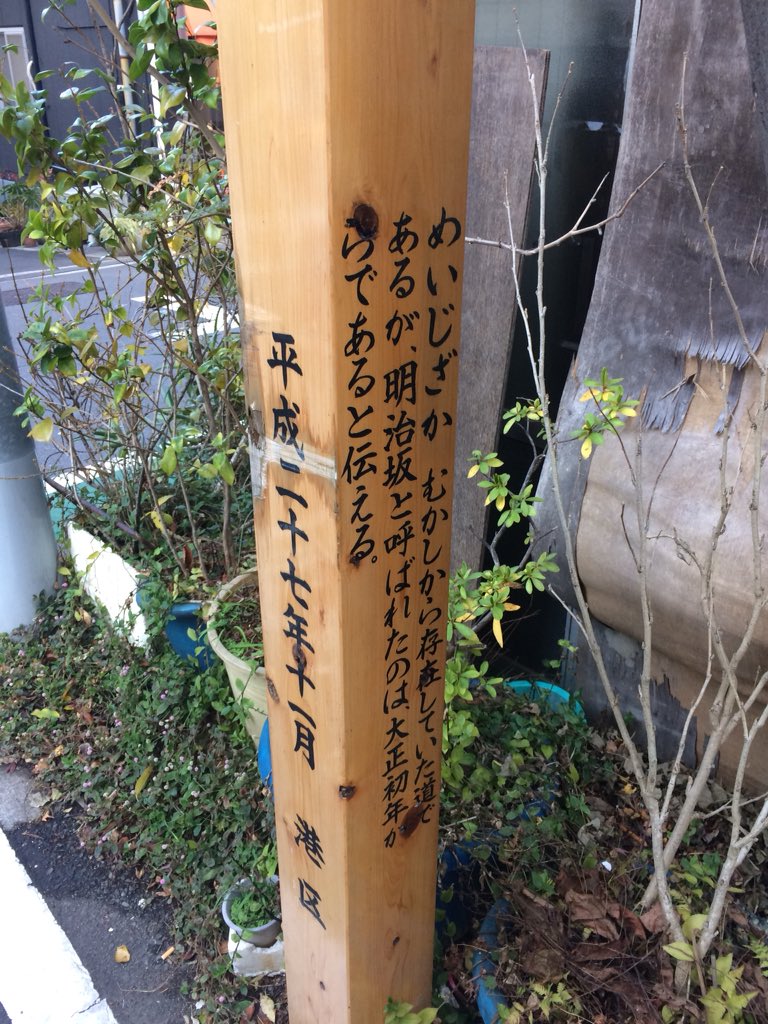 めいじざか　むかしから存在していた道で
あるが、明治坂と呼ばれたのは、大正初年か
らであると伝える。
平成二十七年十一月　港区